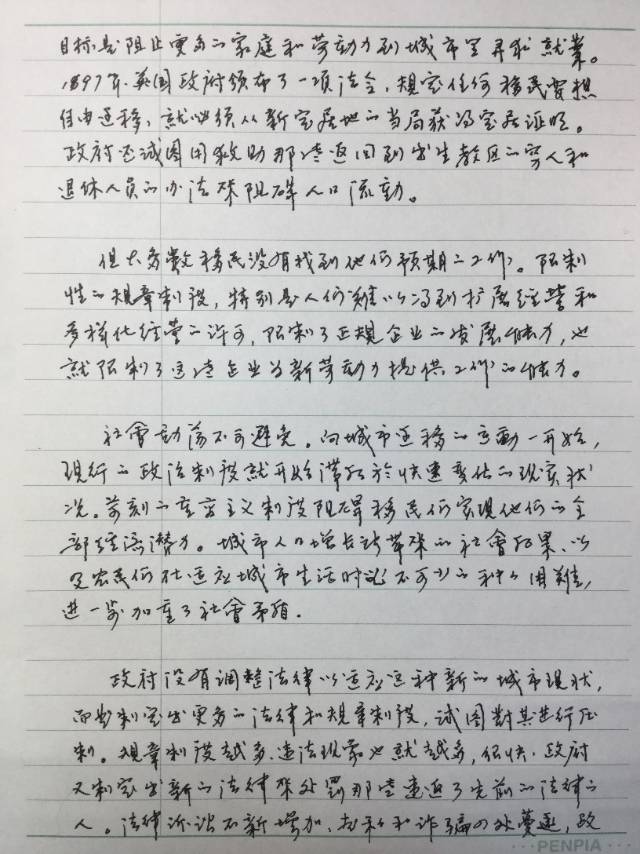 目标是阻止更多的家庭和劳动力到城市里寻求就業。
1697年英国政府颁布了一项法令，规定任何移民要想
自由迁移，就必须从新定居地的当局获得定居证明。
政府还试图用救助那些返回到出生教区的穷人和
退休人员的办法来阻碍人口流動。
但大多数移民没有找到他们预期的工作。限制
性的规章制度，特别是人们难以得到扩展经营和
多样化经营的许可，限制了正规企业的发展能力，也
就限制了这些企业为新劳动力提供工作的能力。
社會动荡不可避免。向城市迁移的运動一开始，
现行的政治制度就开始滞后於快速变化的现实状
况。苛刻的重商主义制度阻碍移民们实现他们的全
部经济潜力。城市人口增长所带来的社會后果，以
及农民们在适应城市生活时必不可少的种种困難，
进一步加重了社會矛盾。
政府没有调整法律以适应这种新的城市现状，
而当制定出更多的法律和规章制度，试图對其进行压
制。规章制度越多，违法现象也就越多，很快，政府
又制定出新的法律来处罰那些违返了先前的法律的
人。法律诉讼不断增加，走私和诈骗四处蔓延，政
PENPIA